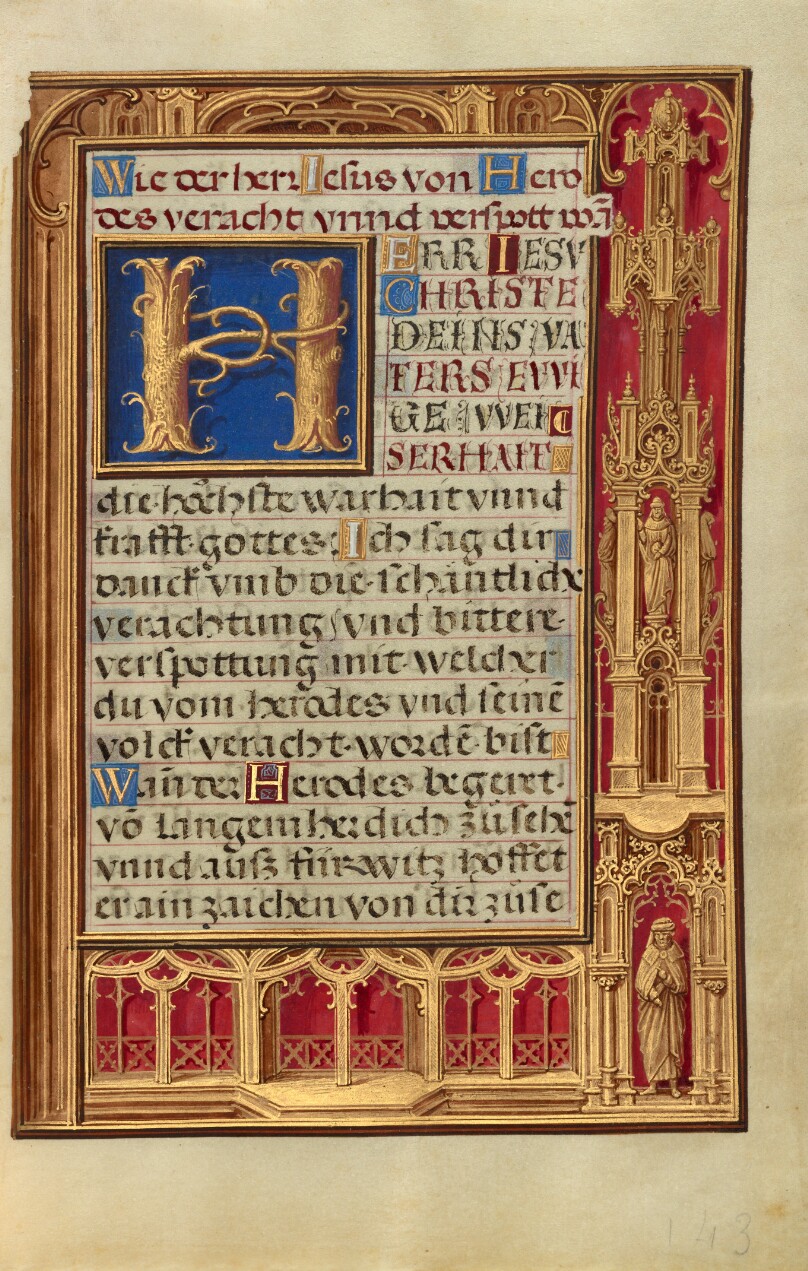 Wie der herr Iesus von Hero
des veracht vnnd verspott wā
H
ERR IESV
CHRISTE
DEINS VA
TERS EVVI
GE VVEI
SERHAIT
die höchste warhait vnnd
krafft gottes: Ich sag dir
danck vmb die schäntliche
verachtung vnd bittere
verspottung mit welcher
du vom herodes vnd seinē
volck veracht wordē bist
Wañ der Herodes begeret
vō langem her dich zůsehē
vnnd ausz fürwitz hoffet
er ain zaichen von dir zůse
143